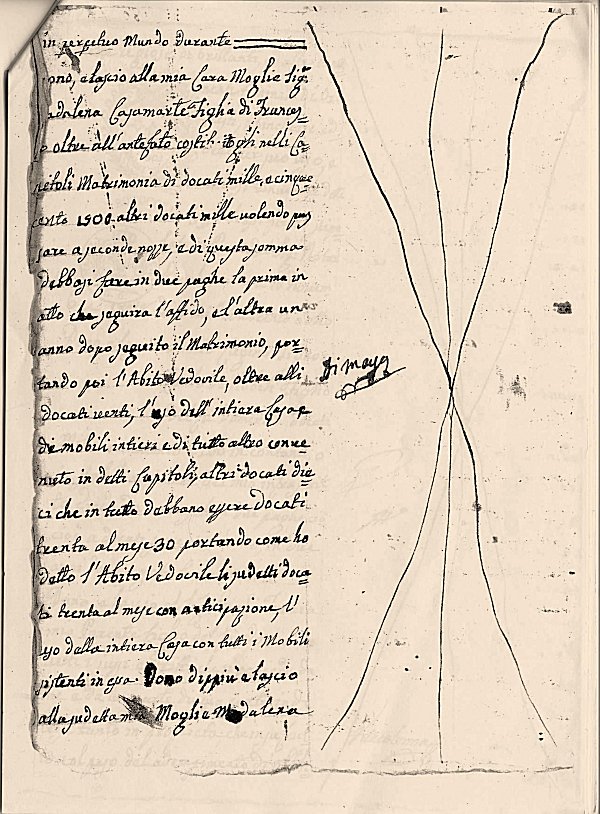 in perpetuo Mundo durante
ono, e lascio alla mia Cara Moglie Sig.ra
adalena Casamarte Figlia di Frances=
o oltre all'antefato costit. itogli nelli Ca=
pitoli Matrimonia di docati mille, e cinque
cento 1500 altri docati mille volendo pas
sare a seconde nozze, e di questa somma
debbasi fare in due paghe la prima in
atto che seguira l'affido, e l'altra un
anno dopo seguito il Matrimonio, por=
tando poi l'Abito Vedovile, oltre alli
docati venti, l'uso dell'intiera Casa e
de mobili intieri e di tutto altro conve=
nuto in detti Capitoli, altri docati die=
ci che in tutto debbano essere docati
trenta al mese 30 portando come ho
detto l'Abito Vedovile li sudetti doca=
ti trenta al mese con anticipazione, l'
uso della intiera Casa con tutti i Mobili
sistenti in essa. Dono dippiù e lascio
alla sudetta mia Moglie Madalena
Di mayo